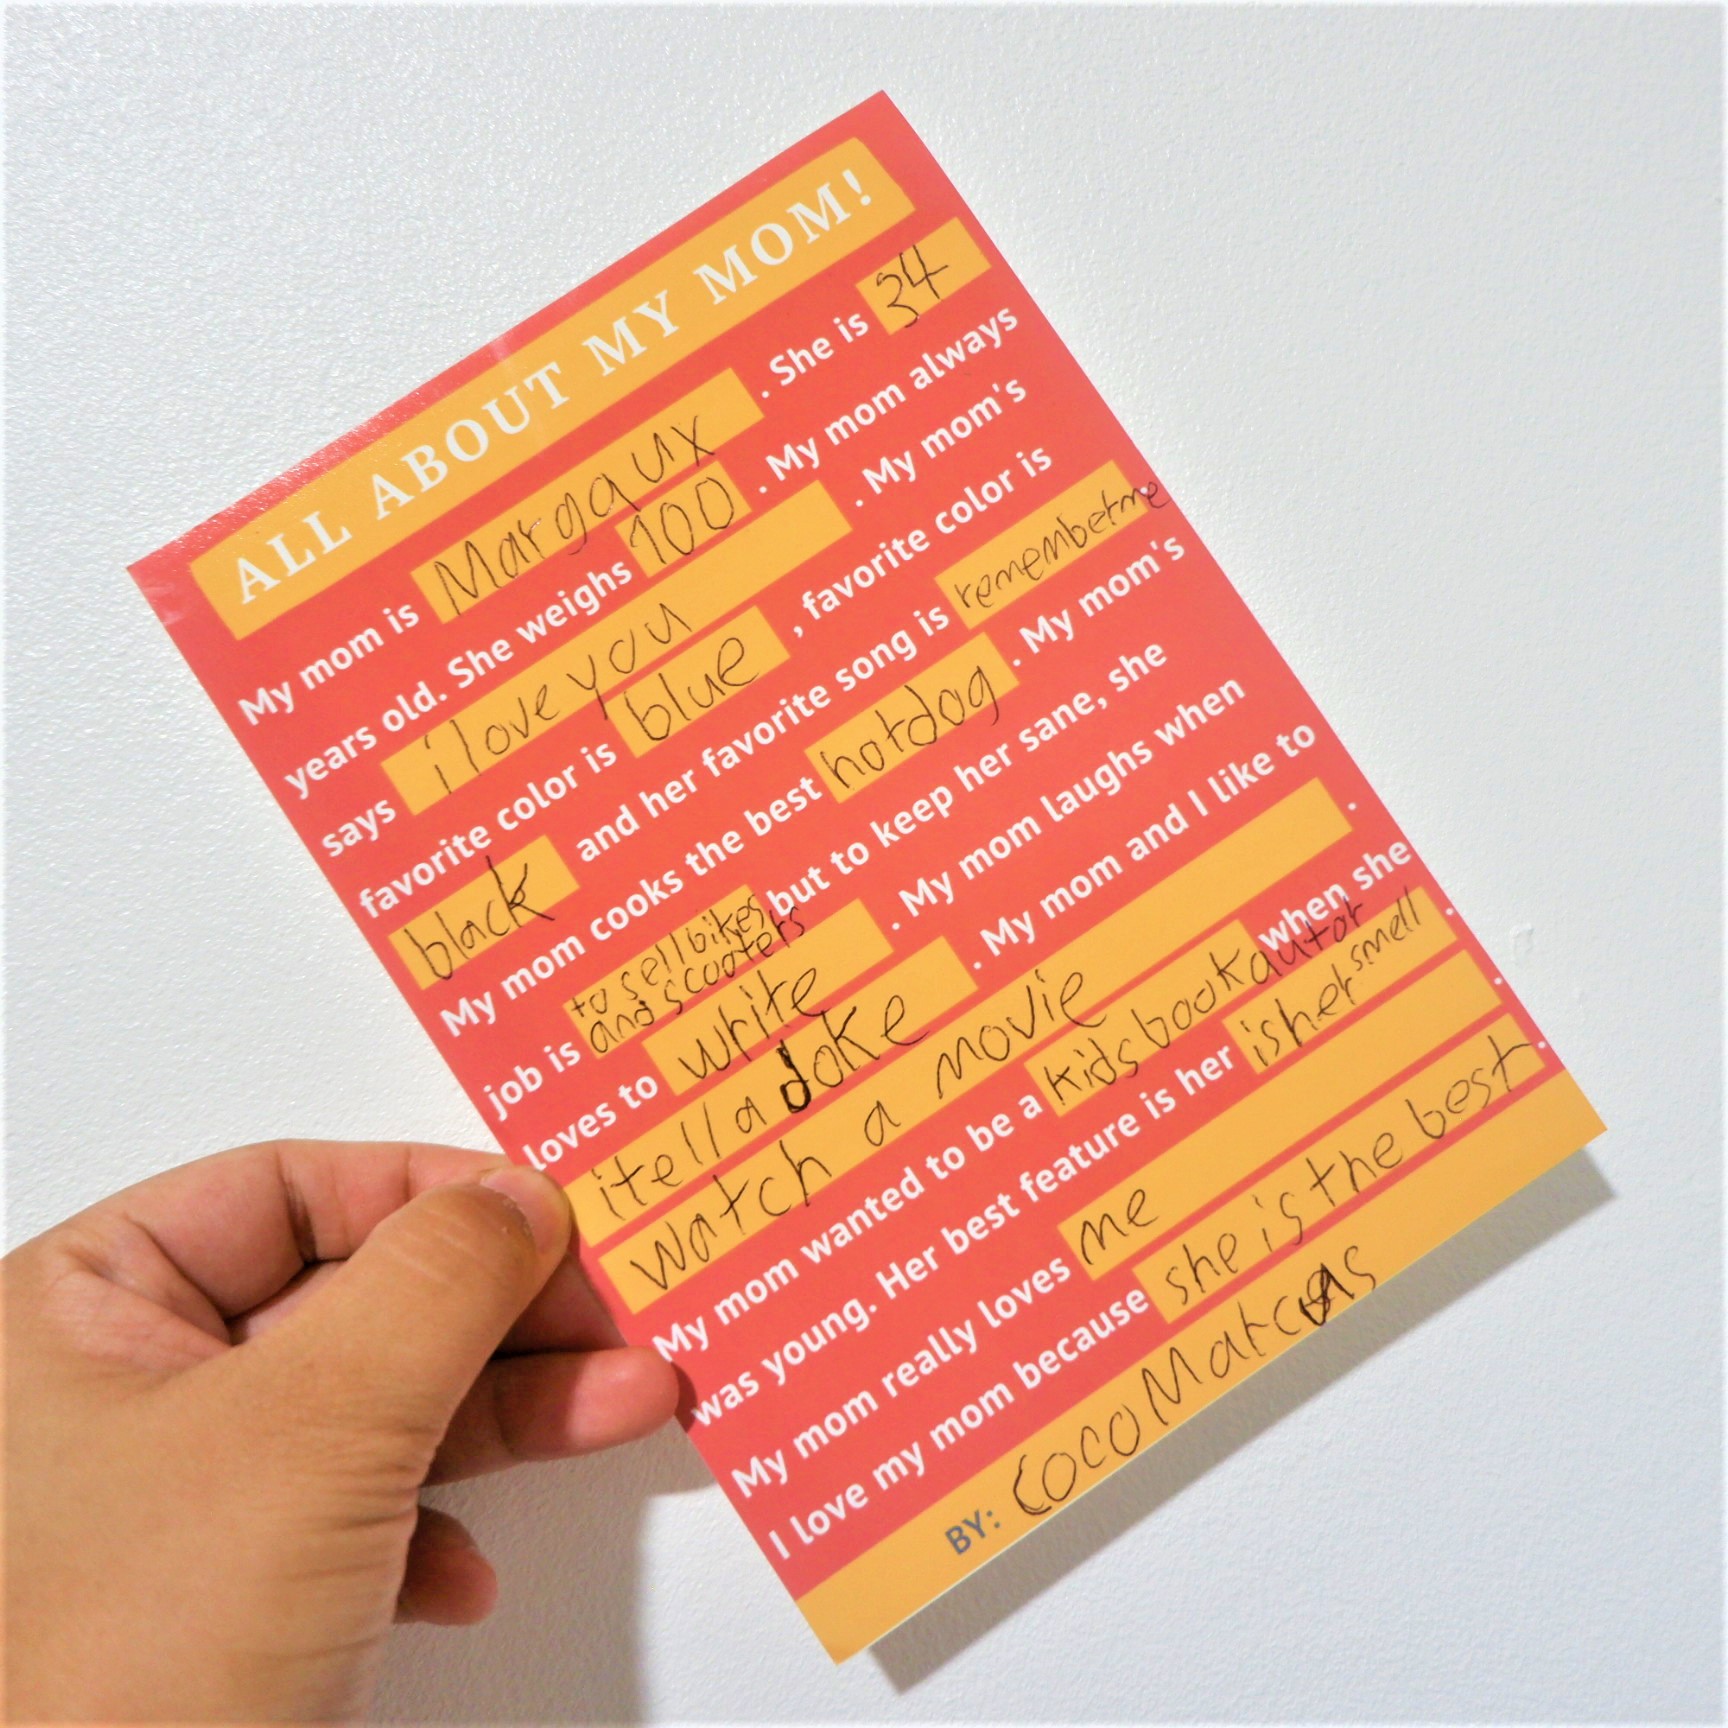 ALL ABOUT MY MOM!
My mom is Margaux . She is 34
years old. She weighs 100 . My mom always
says i love you . My mom's
favorite color is blue , favorite color is
black and her favorite song is remember me .
My mom cooks the best hotdog . My mom's
job is to sell bikes and scooters but to keep her sane, she
loves to write . My mom laughs when
i tell a joke . My mom and I like to
watch a movie .
My mom wanted to be a kids book autor when she
was young. Her best feature is her is her smell .
My mom really loves me .
I love my mom because she is the best .
BY: Coco Marcus